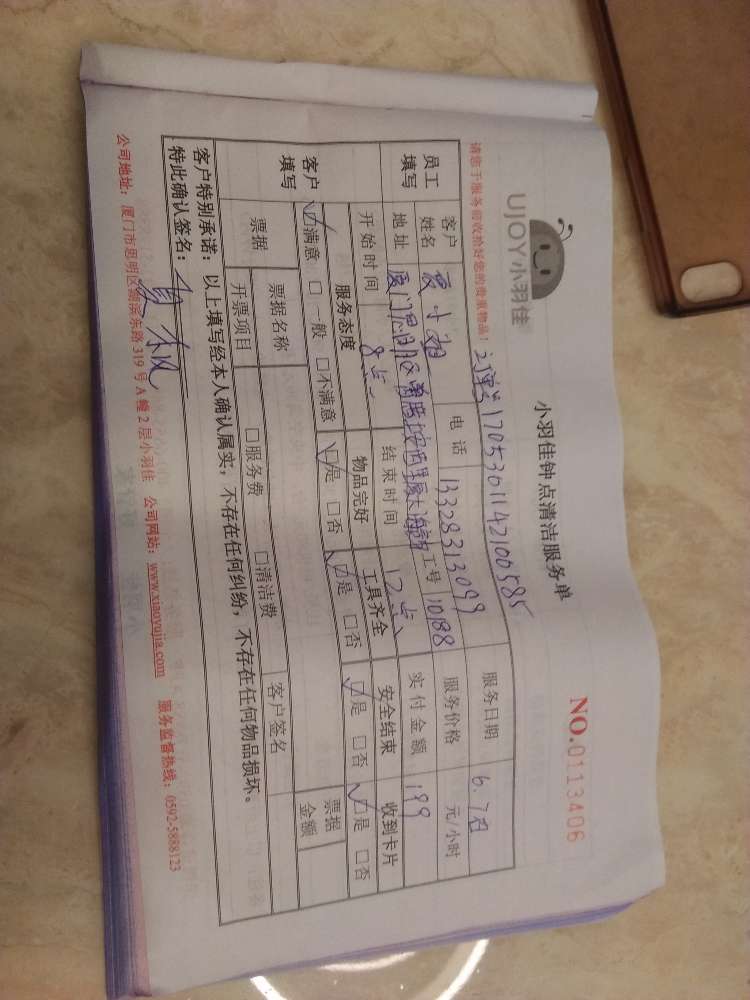 UJOY小羽佳
小羽佳钟点清洁服务单
NO.0113406
请您于服务前收拾好您的贵重物品！
订单号1705301142100585
员工填写
客户姓名 夏小姐 电话 13328313099 服务日期 6.7日
地址 厦门思明区 工号 10188 服务价格 元/小时
开始时间 8点 结束时间 12点 实付金额 199
客户填写
服务态度 物品完好 工具齐全 安全结束 收到卡片
☑满意 □一般 □不满意 ☑是 □否 ☑是 □否 ☑是 □否 ☑是 □否
票据 票据名称 客户签名 票据金额
开票项目 □服务费 □清洁费
客户特别承诺：以上填写经本人确认属实，不存在任何纠纷，不存在任何物品损坏。
特此确认签名：
公司地址：厦门市思明区湖滨东路319号A幢2层小羽佳 公司网站：www.xiaoyujia.com 服务监督热线：0592-5888123